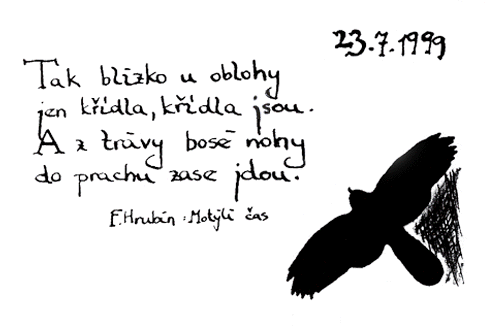 23.7.1999
Tak blízko u oblohy
jen křídla, křídla jsou.
A z trávy bosé nohy
do prachu zase jdou.
F. Hrubín : Motýlí čas